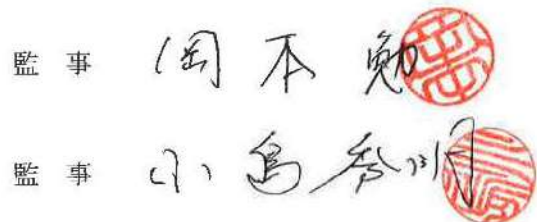 監事 岡本勉
監事 小島秀明